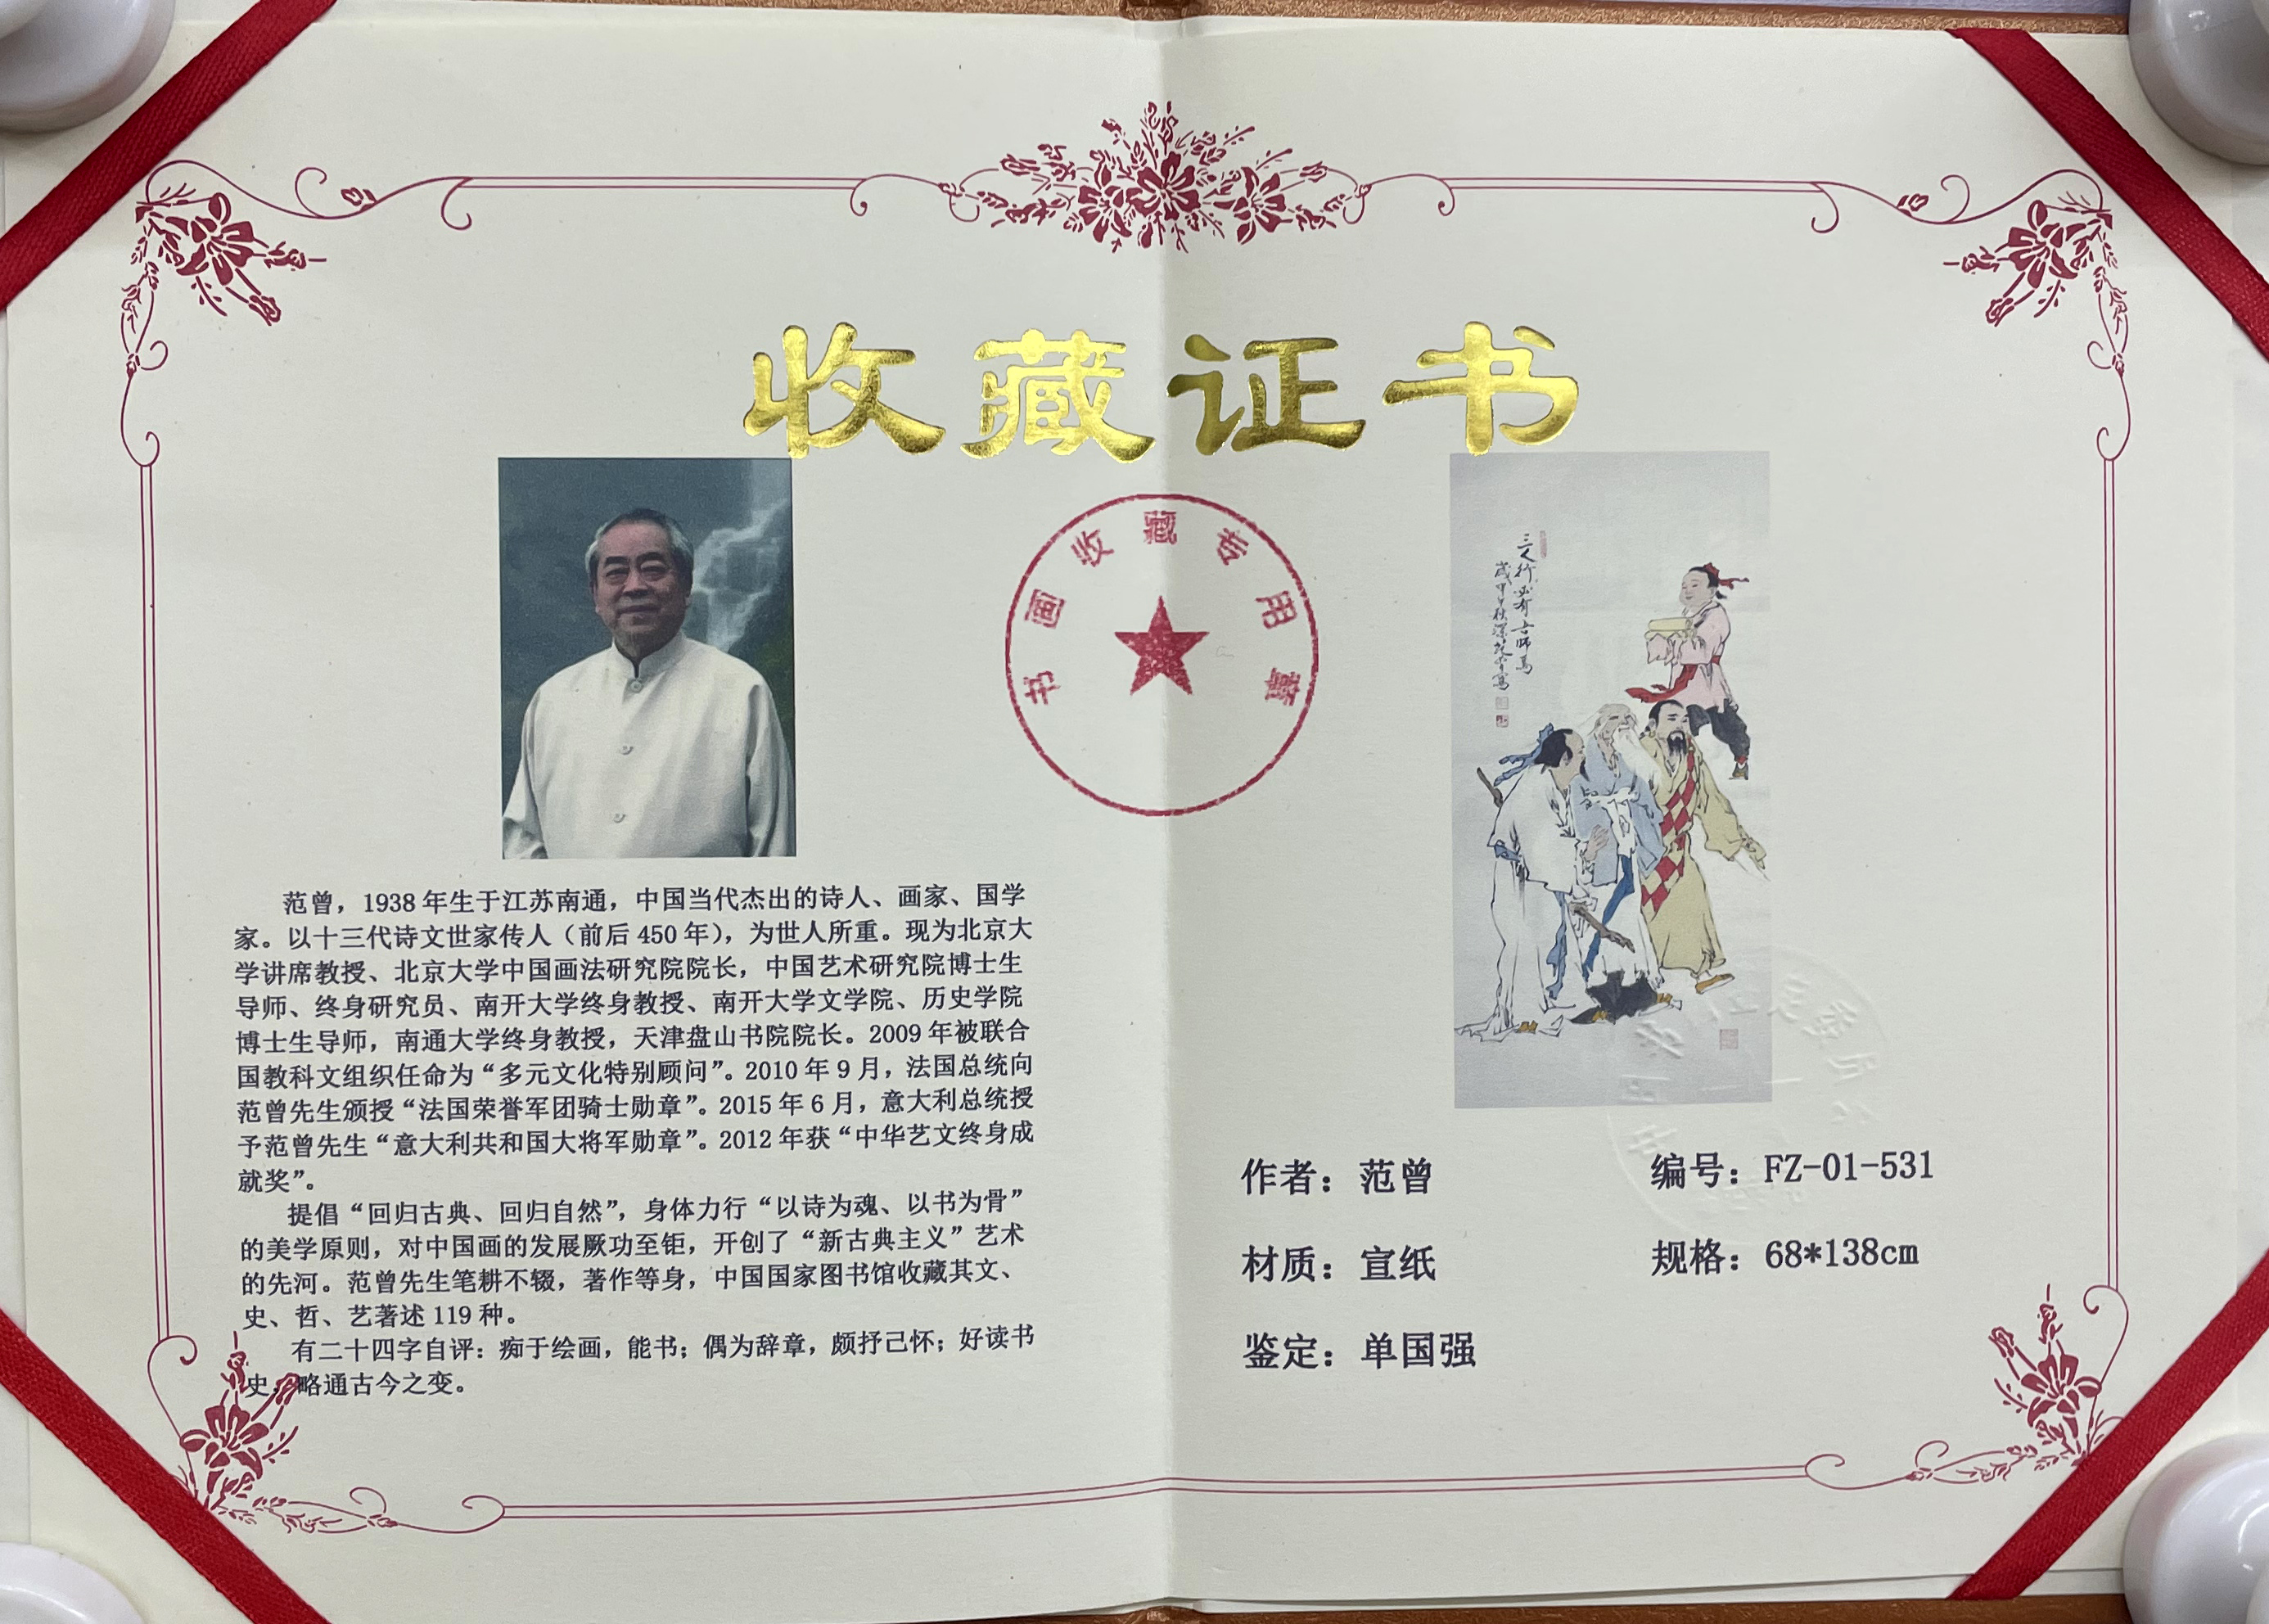 收藏证书
书画收藏专用章
范曾，1938年生于江苏南通，中国当代杰出的诗人、画家、国学
家。以十三代诗文世家传人（前后450年），为世人所重。现为北京大
学讲席教授、北京大学中国画法研究院院长，中国艺术研究院博士生
导师、终身研究员、南开大学终身教授、南开大学文学院、历史学院
博士生导师，南通大学终身教授，天津盘山书院院长。2009年被联合
国教科文组织任命为“多元文化特别顾问”。2010年9月，法国总统向
范曾先生颁授“法国荣誉军团骑士勋章”。2015年6月，意大利总统授
予范曾先生“意大利共和国大将军勋章”。2012年获“中华艺文终身成
就奖”。
提倡“回归古典、回归自然”，身体力行“以诗为魂、以书为骨”
的美学原则，对中国画的发展厥功至钜，开创了“新古典主义”艺术
的先河。范曾先生笔耕不辍，著作等身，中国国家图书馆收藏其文、
史、哲、艺著述119种。
有二十四字自评：痴于绘画，能书；偶为辞章，颇抒己怀；好读书
史，略通古今之变。
三人行必有吾师焉
岁甲午秋深范曾写
作者：范曾
编号：FZ-01-531
材质：宣纸
规格：68*138cm
鉴定：单国强